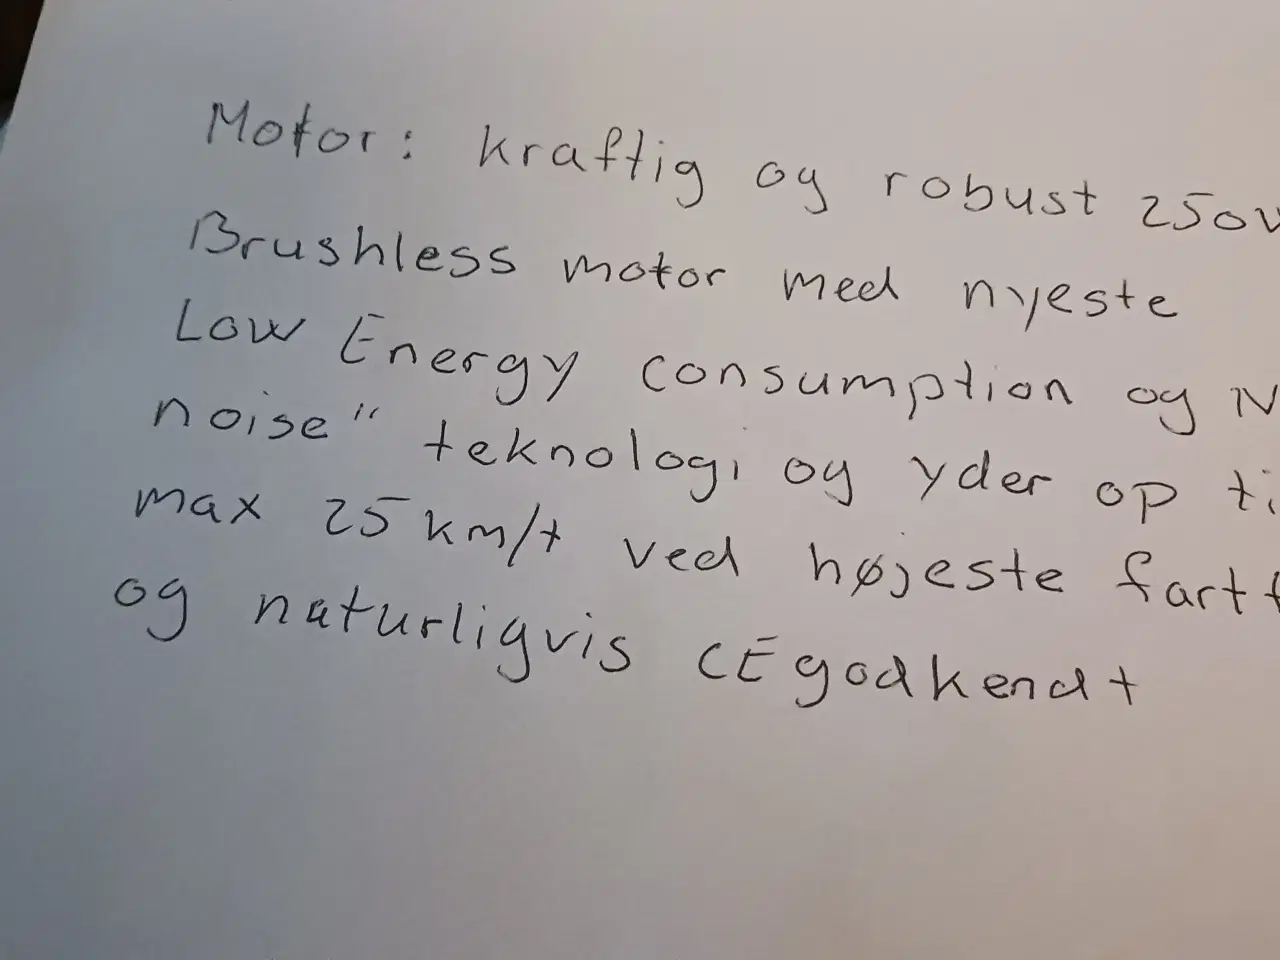 Motor: kraftig og robust 250W
Brushless motor med nyeste
Low Energy consumption og
noise" teknologi og yder op
max 25 km/t ved højeste
og naturligvis CE godkendt